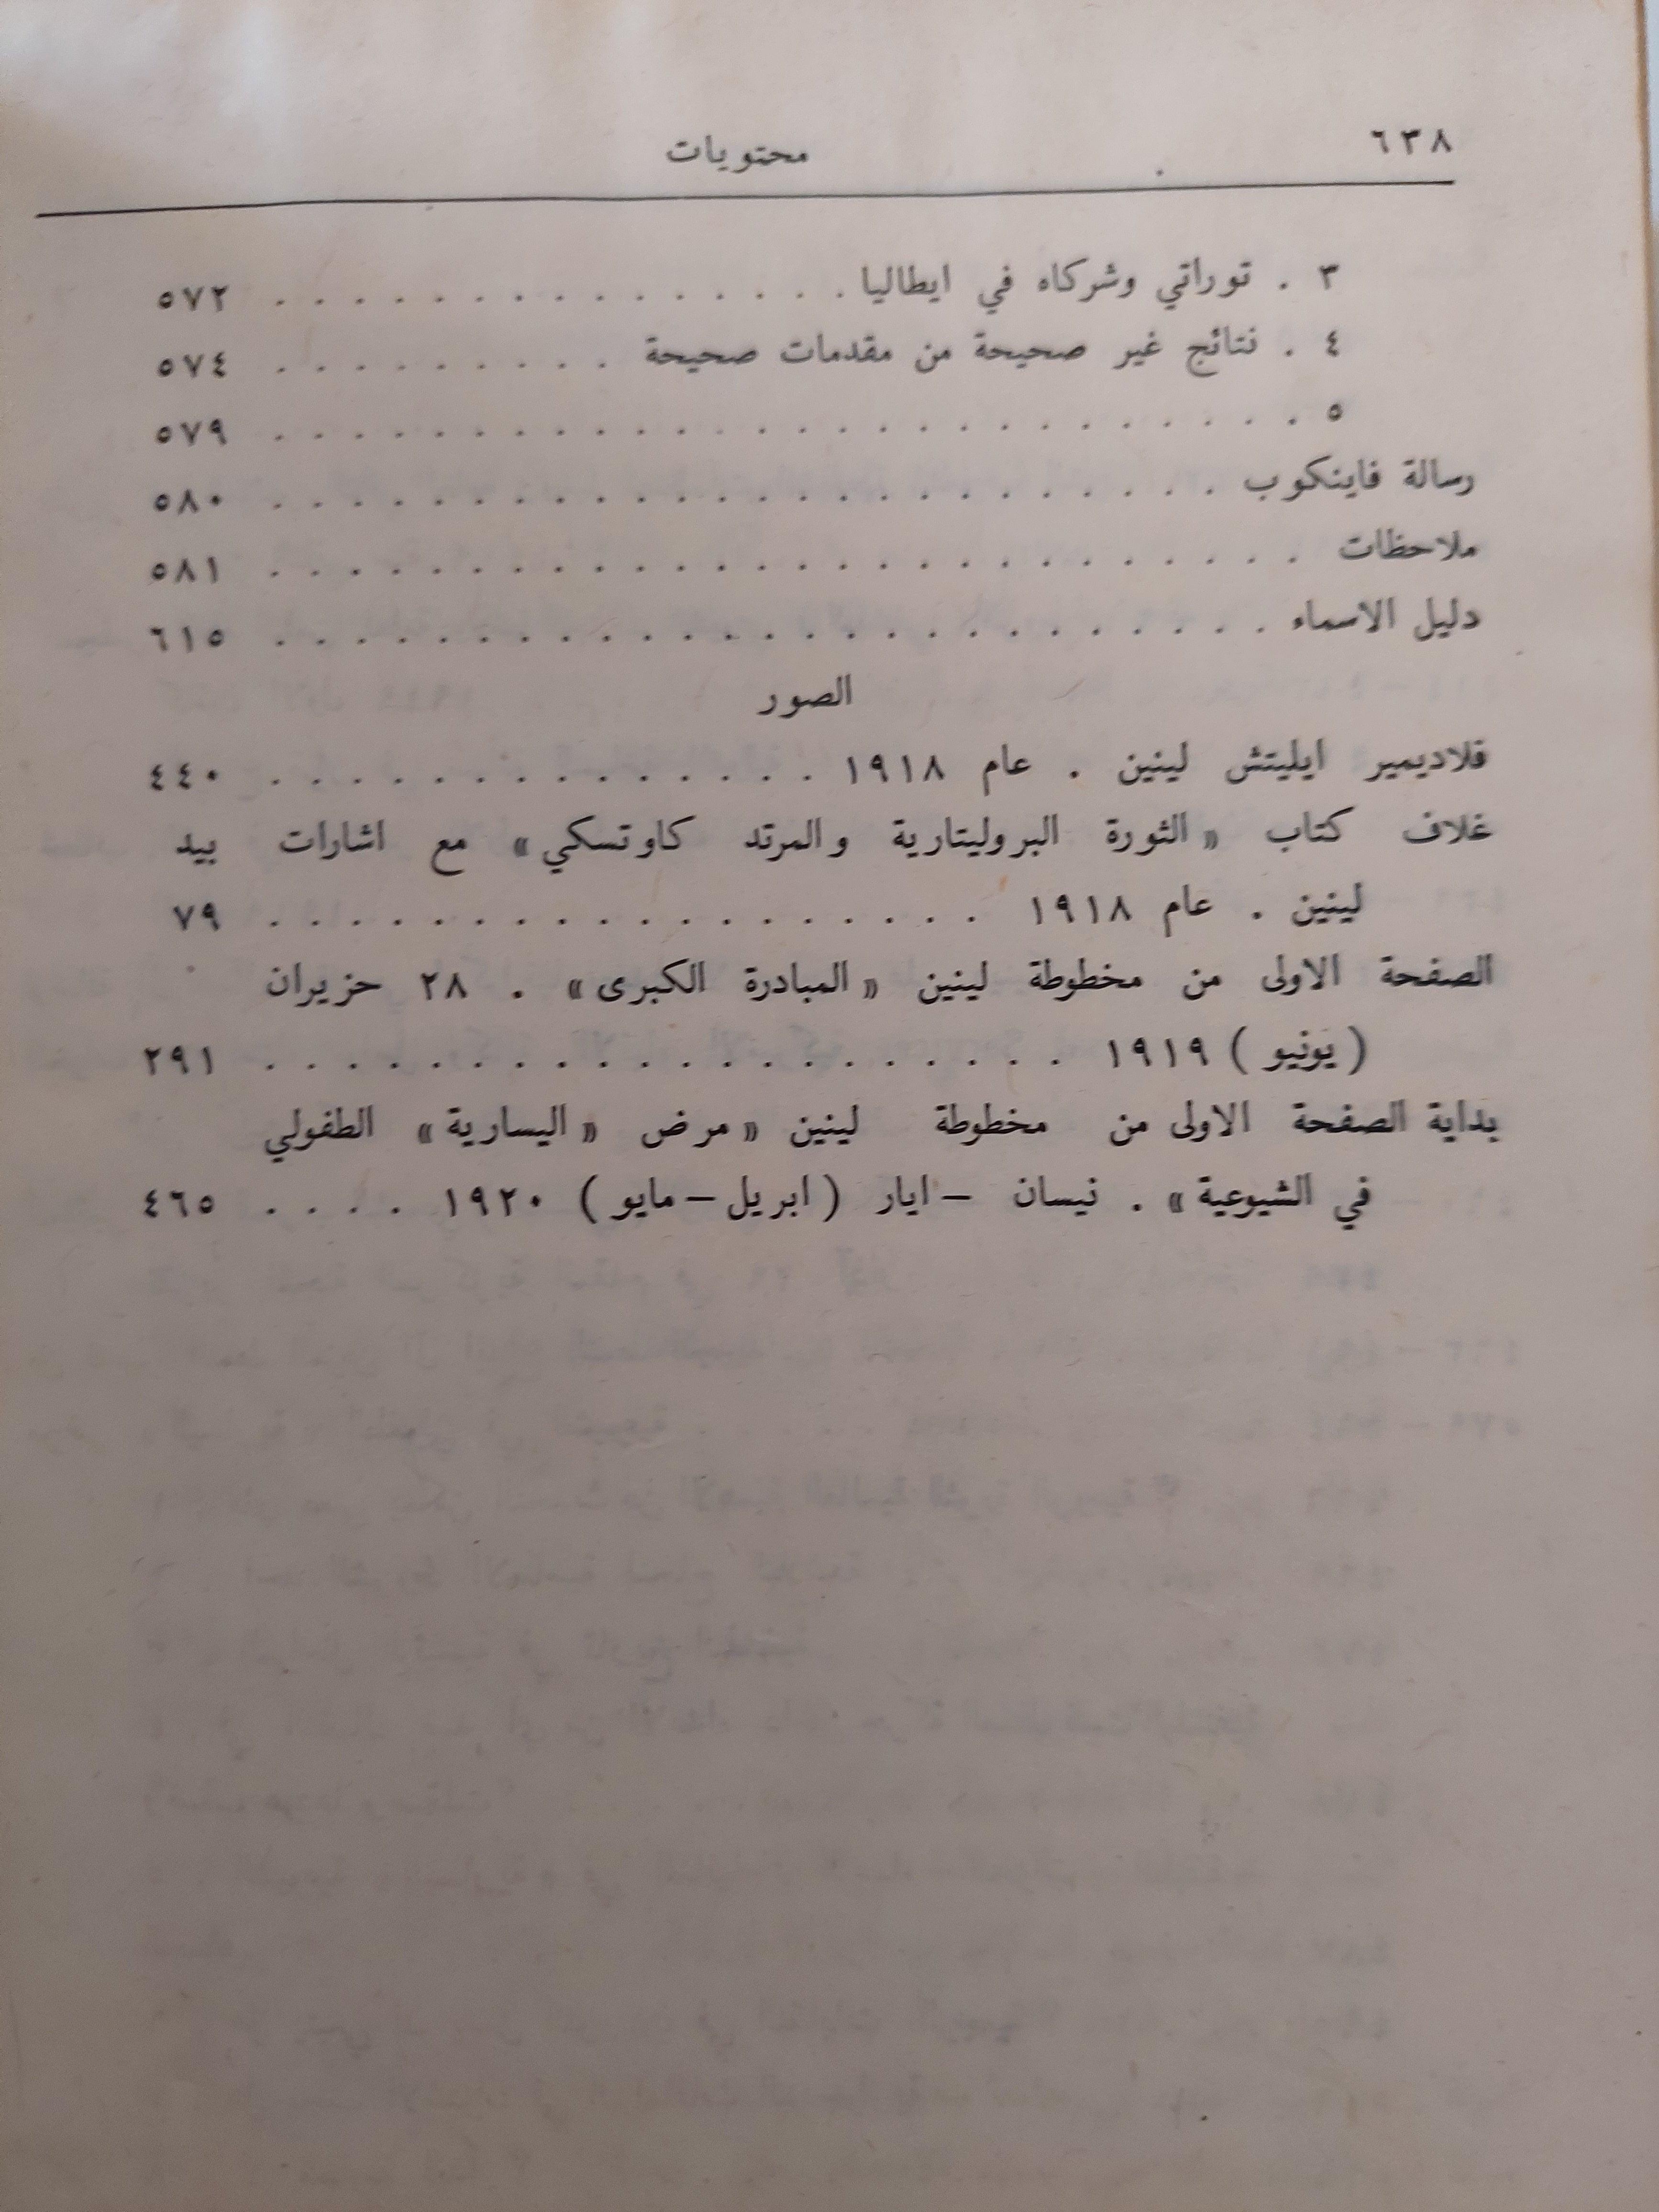 ٦٣٨ محتويات
٣ . توراتي وشركاه في ايطاليا . . . . . . . . . . . . . . . ٥٧٢
٤ . نتائج غير صحيحة من مقدمات صحيحة . . . . . . . . . ٥٧٤
٥ . . . . . . . . . . . . . . . . . . . . . . . . . . . ٥٧٩
رسالة فاينكوب . . . . . . . . . . . . . . . . . . . . . . . . . ٥٨٠
ملاحظات . . . . . . . . . . . . . . . . . . . . . . . . . . . ٥٨١
دليل الاسماء . . . . . . . . . . . . . . . . . . . . . . . . . . ٦١٥
الصور
فلاديمير ايليتش لينين . عام ١٩١٨ . . . . . . . . . . . . . . ٤٤٠
غلاف كتاب «الثورة البروليتارية والمرتد كاوتسكي» مع اشارات بيد
لينين . عام ١٩١٨ . . . . . . . . . . . . . . . . . . ٧٩
الصفحة الاولى من مخطوطة لينين «المبادرة الكبرى» . ٢٨ حزيران
(يونيو) ١٩١٩ . . . . . . . . . . . . . . . . . . . . ٢٩١
بداية الصفحة الاولى من مخطوطة لينين «مرض «اليسارية» الطفولي
في الشيوعية» . نيسان – ايار (ابريل – مايو) ١٩٢٠ . . . . ٤٦٥